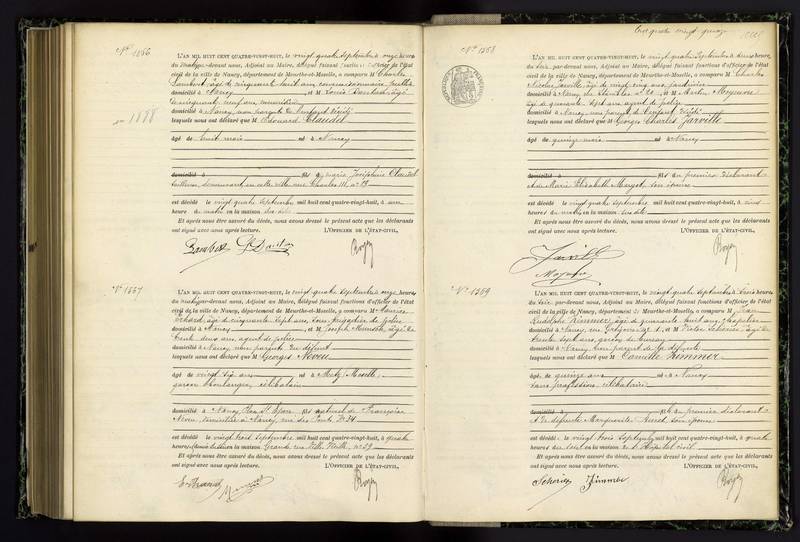 N° 1356
L'AN MIL HUIT CENT QUATRE-VINGT-HUIT, le vingt quatre septembre à onze heures
du matin par-devant nous, Adjoint au Maire, délégué faisant fonctions d'officier de l'état
civil de la ville de Nancy, département de Meurthe-et-Moselle, a comparu M Charles
âgé de cinquante huit ans commissionnaire public
domicilié à Nancy, et M Louis âgé
de cinquante neuf ans
domicilié à Nancy non parents de l'enfant
lesquels nous ont déclaré que M Edouard Claudel
1888
âgé de huit mois né à Nancy
domicilié à fils de Marie Joséphine Claudel
en cette ville rue Charles III, n°
est décédé le vingt quatre septembre mil huit cent quatre-vingt-huit, à
heures du matin en la maison
Et après nous être assuré du décès, nous avons dressé le présent acte que les déclarants
ont signé avec nous après lecture. L'OFFICIER DE L'ÉTAT-CIVIL,
N° 1357
L'AN MIL HUIT CENT QUATRE-VINGT-HUIT, le vingt quatre septembre à onze heures
du matin par-devant nous, Adjoint au Maire, délégué faisant fonctions d'officier de l'état
civil de la ville de Nancy, département de Meurthe-et-Moselle, a comparu M
âgé de cinquante sept ans, sous brigadier de police
domicilié à Nancy, et M Joseph âgé de
trente deux ans, agent de police
domicilié à Nancy, non parents du défunt
lesquels nous ont déclaré que M Georges Neveu
âgé de vingt six ans né à Metz (Moselle)
garçon boulanger, célibataire
domicilié à Nancy, fils naturel de Françoise
Neveu à Nancy, rue des Ponts N° 34
est décédé le vingt trois septembre mil huit cent quatre-vingt-huit, à quatre
heures en la maison Grande rue Ville Vieille n° 59
Et après nous être assuré du décès, nous avons dressé le présent acte que les déclarants
ont signé avec nous après lecture. L'OFFICIER DE L'ÉTAT-CIVIL,
cent quatre vingt
N° 1358
RÉPUBLIQUE FRANÇAISE
L'AN MIL HUIT CENT QUATRE-VINGT-HUIT, le vingt quatre septembre à deux heures
du soir par-devant nous, Adjoint au Maire, délégué faisant fonctions d'officier de l'état
civil de la ville de Nancy, département de Meurthe-et-Moselle, a comparu M Charles
Nicolas Jarville, âgé de vingt cinq ans
domicilié à Nancy, rue et M
âgé de quarante sept ans agent de police
domicilié à Nancy non parent de l'enfant
lesquels nous ont déclaré que M Georges Charles Jarville
âgé de quinze mois né à Nancy
domicilié à fils du premier déclarant
et de Marie Elisabeth son épouse
est décédé le vingt quatre septembre mil huit cent quatre-vingt-huit, à cinq
heures du matin en la maison
Et après nous être assuré du décès, nous avons dressé le présent acte que les déclarants
ont signé avec nous après lecture. L'OFFICIER DE L'ÉTAT-CIVIL,
Jarville
N° 1359
L'AN MIL HUIT CENT QUATRE-VINGT-HUIT, le vingt quatre septembre à trois heures
du soir par-devant nous, Adjoint au Maire, délégué faisant fonctions d'officier de l'état
civil de la ville de Nancy, département de Meurthe-et-Moselle, a comparu M Jean
Rodolphe Zimmer, âgé de quarante huit ans
domicilié à Nancy, rue et M Victor âgé de
trente sept ans, garçon de bureau
domicilié à Nancy non parent de la défunte
lesquels nous ont déclaré que M Camille Zimmer
âgé de quinze ans né à Nancy
sans profession, célibataire
domicilié à fille du premier déclarant
et de défunte Marguerite son épouse
est décédé le vingt trois septembre mil huit cent quatre-vingt-huit, à quatre
heures du soir en la maison de l'hôpital civil
Et après nous être assuré du décès, nous avons dressé le présent acte que les déclarants
ont signé avec nous après lecture. L'OFFICIER DE L'ÉTAT-CIVIL,
Zimmer